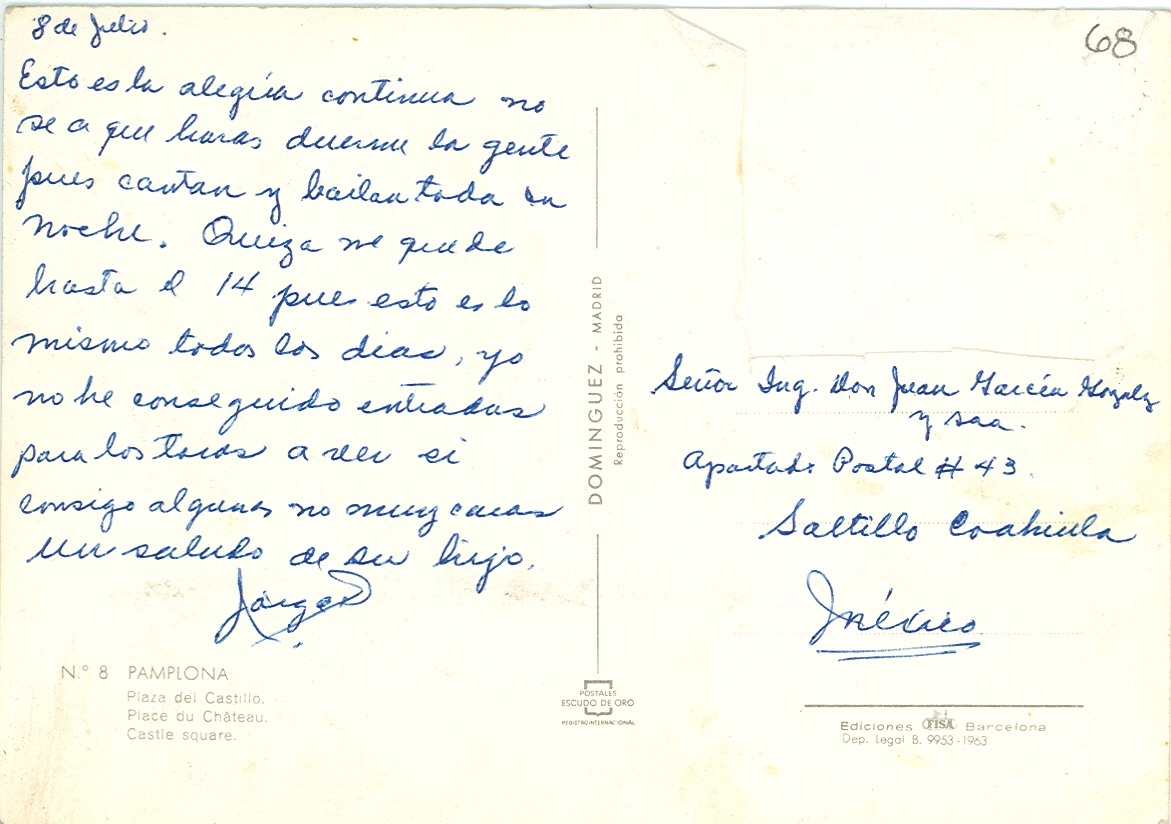 8 de Julio.
Esto es la alegría continua no
se a que horas duerme la gente
pues cantan y bailan toda la
noche. Quiza me quede
hasta el 14 pues esto es lo
mismo todos los dias, yo
no he conseguido entradas
para los toros a ver si
consigo algunas no muy caras
Un saludo de su hijo.
Jorge
N.º 8 PAMPLONA
Plaza del Castillo.
Place du Château.
Castle square.
DOMINGUEZ - MADRID
Reproducción prohibida
POSTALES
ESCUDO DE ORO
REGISTRO INTERNACIONAL
68
Señor Ing. Don Juan García Gonzalz
y sra.
Apartado Postal # 43.
Saltillo Coahuila
México
Ediciones FISA Barcelona
Dep. Legal B. 9953-1963